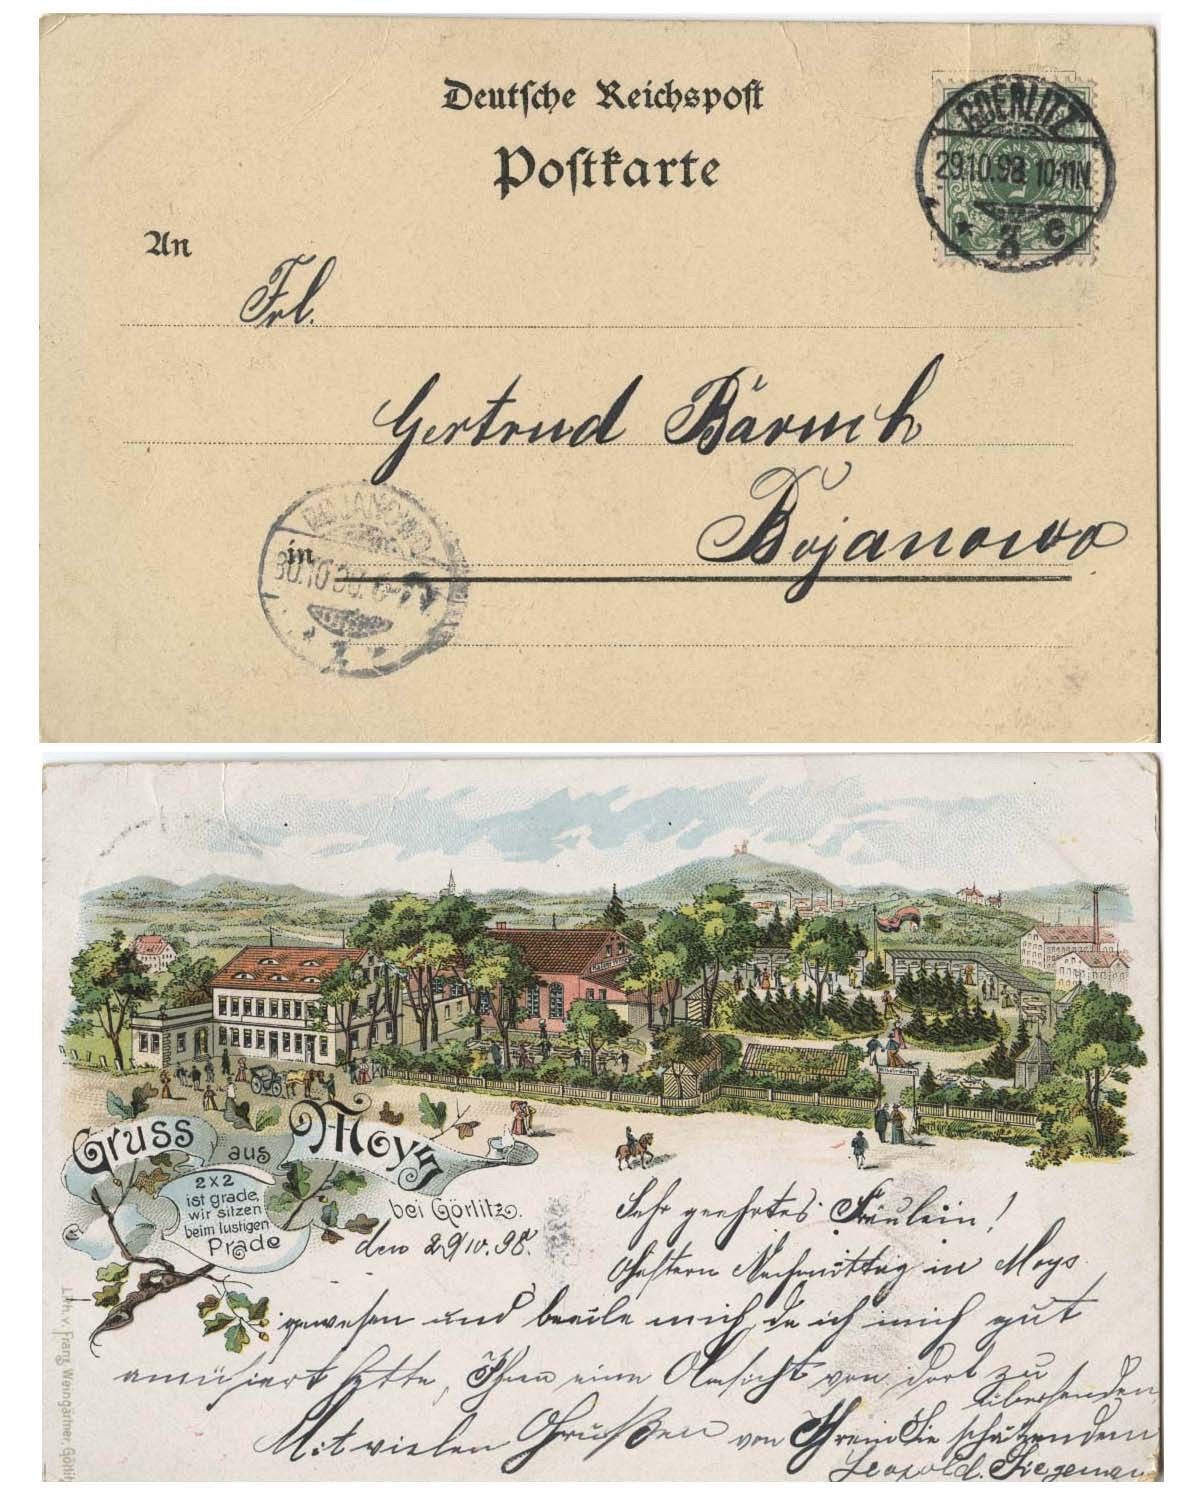 Deutsche Reichspost
Postkarte
GOERLITZ
29.10.98. 10-11N
* 3 c
An
Frl.
Gertrud Bäruch
Bojanowo
BOJANOWO
in
30.10.
Gruss
aus
Moys
bei Görlitz.
2x2
ist grade,
wir sitzen
beim lustigen
Prade
den 29/10. 98.
Sehr geehrtes Fräulein!
Gestern Nachmittag in Moys
gewesen und beeile mich, da ich mich gut
amüsiert hatte, Ihnen eine Ansicht von dort zu
übersenden,
Mit vielen Grüßen von Ihrem Sie schätzendem
Leopold
Lith. v. Franz Weingärtner, Görlitz